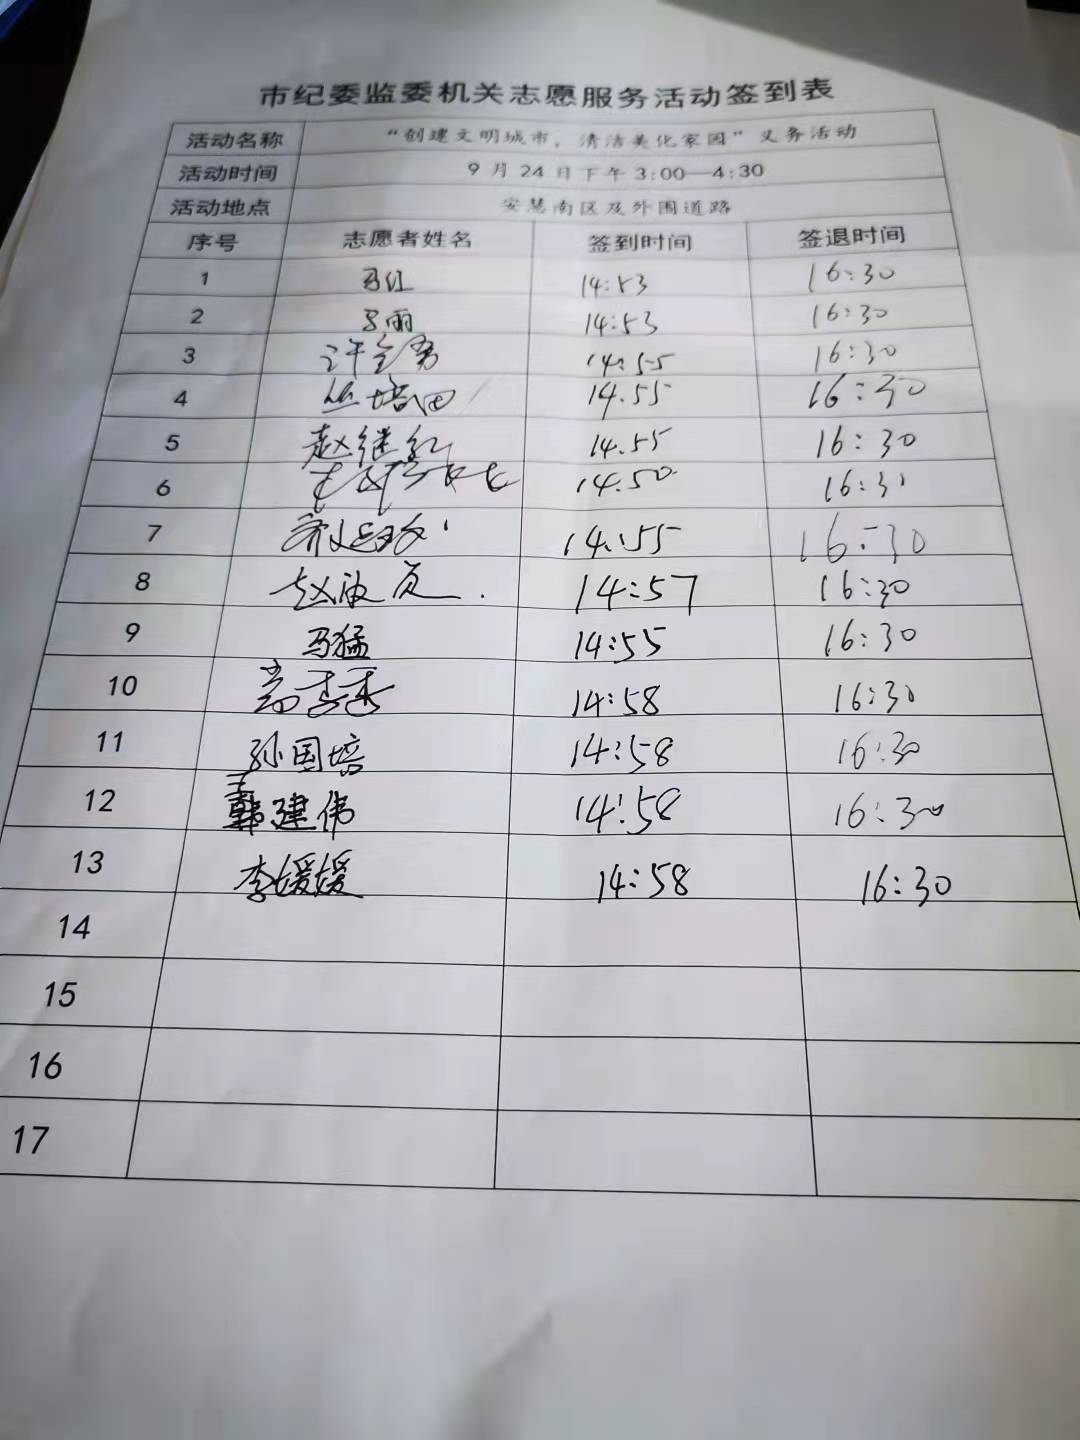 市纪委监委机关志愿服务活动签到表
活动名称 “创建文明城市，清洁美化家园”义务活动
活动时间 9月24日下午3:00—4:30
活动地点 安慧南区及外围道路
序号 志愿者姓名 签到时间 签退时间
1 马红 14:53 16:30
2 马丽 14:53 16:30
3 14:55 16:30
4 丛培田 14.55 16:30
5 赵继红 14.55 16:30
6 14.50 16:31
7 14:55 16:30
8 14:57 16:30
9 马猛 14:55 16:30
10 14:58 16:30
11 孙国培 14:58 16:30
12 韩建伟 14:58 16:30
13 李媛媛 14:58 16:30
14
15
16
17